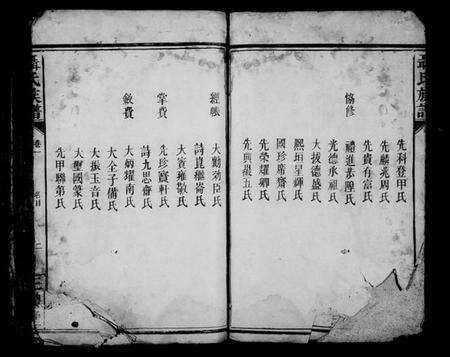 先科登甲氏
先麟兆周氏
先貴有富氏
協修
禮進恭陞氏
光德承祖氏
大拔德盛氏
熙垣星輝氏
國珍席齋氏
先榮耀卿氏
先興巖五氏
經帳
大勳劝臣氏
詩崑繼崙氏
大賓雍敬氏
掌費
先珍寶軒氏
詩九思齋氏
斂費
大炳耀南氏
大全子備氏
大振玉音氏
大聖國篆氏
先甲聯第氏
氏族譜
卷一